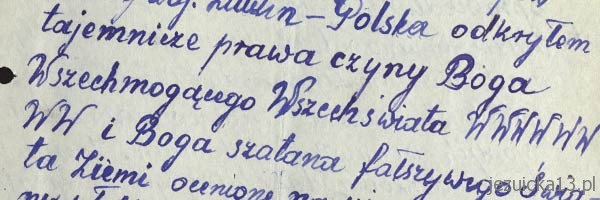 woj. Lublin - Polska odkryłem
tajemnicze prawa czyny Boga
Wszechmogącego Wszechświata WWWWWW
WW i Boga szatana fałszywego Świa-
ta Ziemi ocenione
jezuicka13.pl